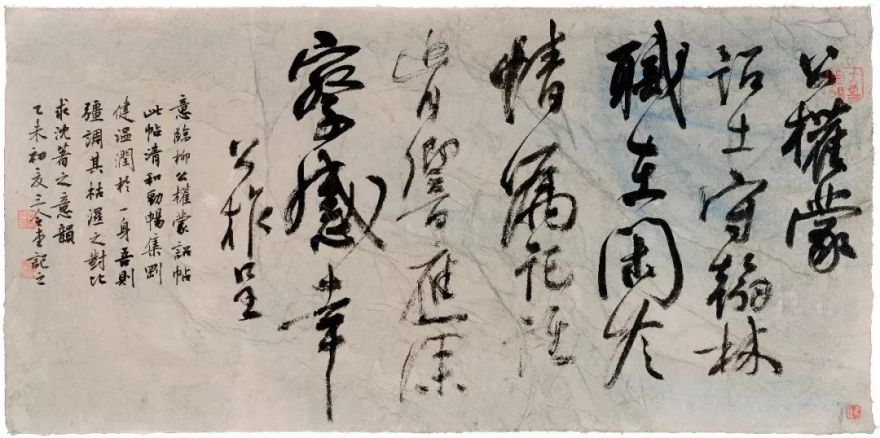 公權蒙
詔出守翰林
職在閑冷
情屬託誰
肯響應深
察感幸
公權呈
意臨柳公權蒙詔帖
此帖清和勁暢集剛
健溫潤於一身吾則
彊調其枯濕之對比
求沈著之意韻
乙未初夏三堂記之